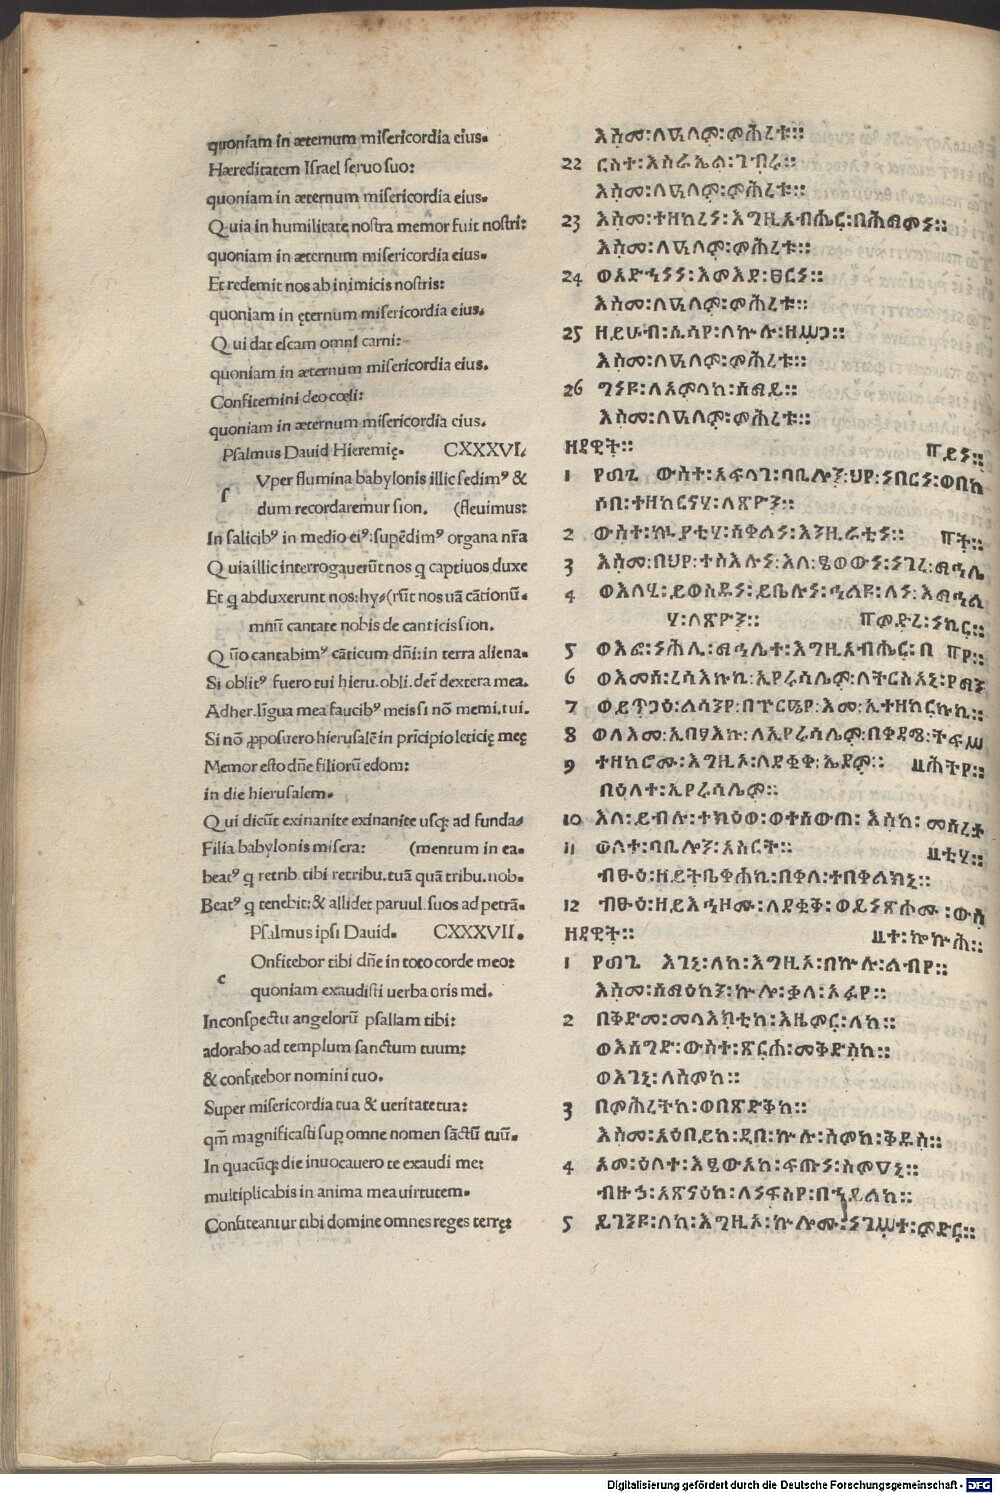 quoniam in æternum misericordia eius.
Hæreditatem Israel seruo suo:
quoniam in æternum misericordia eius.
Quia in humilitate nostra memor fuit nostri:
quoniam in æternum misericordia eius.
Et redemit nos ab inimicis nostris:
quoniam in ęternum misericordia eius.
Qui dat escam omni carni:
quoniam in æternum misericordia eius.
Confitemini deo cœli:
quoniam in æternum misericordia eius.
Psalmus Dauid Hieremię. CXXXVI.
ſ Vper flumina babylonis illic sedimꝰ &
dum recordaremur sion. (fleuimus:
In salicibꝰ in medio eiꝰ: supēdimꝰ organa nr̄a
Quia illic interrogauerūt nos q captiuos duxe
Et q abduxerunt nos: hy/(rūt nos uā cātionū.
mnū cantate nobis de canticis sion.
Qūo cantabimꝰ cāticum dñi: in terra aliena.
Si oblitꝰ fuero tui hieru. obli. det̄ dextera mea.
Adher. līgua mea faucibꝰ meis si nō memi. tui.
Si nō ꝓposuero hierusalē in prīcipio leticię meę
Memor esto dñe filiorū edom:
in die hierusalem.
Qui dicūt exinanite exinanite usq; ad funda/
Filia babylonis misera: (mentum in ea.
beatꝰ q retrib. tibi retribu. tuā quā tribu. nob.
Beatꝰ q tenebit: & allidet paruul. suos ad petrā.
Psalmus ipsi Dauid. CXXXVII.
c Onfitebor tibi dñe in toto corde meo:
quoniam exaudisti uerba oris mei.
In conspectu angelorū psallam tibi:
adorabo ad templum sanctum tuum:
& confitebor nomini tuo.
Super misericordia tua & ueritate tua:
qm̄ magnificasti sup omne nomen sāctū tuū.
In quacūq; die inuocauero te exaudi me:
multiplicabis in anima mea uirtutem.
Confiteantur tibi domine omnes reges terrę:
እስመ:ለዓለም:ምሕረቱ።
22 ርስተ:እስራኤል:ገብሩ።
እስመ:ለዓለም:ምሕረቱ።
23 እስመ:ተዘከረነ:እግዚአብሔር:በሕማምነ።
እስመ:ለዓለም:ምሕረቱ።
24 ወአድኅነነ:እምእደ:ፀርነ።
እስመ:ለዓለም:ምሕረቱ።
25 ዘይሁብ:ሲሳየ:ለኵሉ:ዘሥጋ።
እስመ:ለዓለም:ምሕረቱ።
26 ግነዩ:ለአምላከ:ሰማይ።
እስመ:ለዓለም:ምሕረቱ።
ዘዳዊት።
1 ውስተ:አፍላገ:ባቢሎን:ህየ:ነበርነ:ወበከ
ሶበ:ተዘከርናሃ:ለጽዮን።
2 ውስተ:ኲያቲሃ:ሰቀልነ:እንዚራቲነ።
3 እስመ:በህየ:ተስእሉነ:እለ:ፄወዉነ:ነገረ:ማኅሌ
4 ወእለሂ:ይወስዱነ:ይቤሉነ:ኅልዩ:ለነ:እማኅል
ሃ:ለጽዮን።
5 ወእፎ:ነሐሊ:ማኅሌተ:እግዚአብሔር:በ
6 ወእመሰ:ረሳእኩኪ:ኢየሩሳሌም:ለትርስአኒ:የማን
7 ወይጥጋዕ:ልሳንየ:በጕርዔየ:እመ:ኢተዘከርኩኪ።
8 ወለእመ:ኢበፃእኩ:ለኢየሩሳሌም:በቀዳሚ:ትፍሥ
9 ተዘከሮሙ:እግዚኦ:ለደቂቀ:ኤዶም።
በዕለተ:ኢየሩሳሌም።
10 እለ:ይብሉ:ተክዕወ:ወተሰውጠ: እስከ: መሰረተ
11 ወለተ:ባቢሎን:አስርት።
ብፁዕ:ዘይትቤቀለኪ:በቀለ:ተበቀልክኒ።
12 ብፁዕ:ዘይእኅዞሙ:ለደቂቅ:ወይነጽሖሙ:ውስ
ዘዳዊት።
1 እገኒ:ለከ:እግዚኦ:በኵሉ:ልብየ።
እስመ:ሰማዕከኒ:ኵሎ:ቃለ:አፉየ።
2 በቅድመ:መላእክቲከ:እዜምር:ለከ።
ወእሰግድ:ውስተ:ጽርሐ:መቅድስከ።
ወእገኒ:ለስምከ።
3 በምሕረትከ:ወበጽድቅከ።
እስመ:አዕበይከ:ዲበ:ኵሉ:ስምከ:ቅዱስ።
4 አመ:ዕለተ:እፄውአከ:ፍጡነ:ስምዐኒ።
ብዙኃ:አጽናዕከ:ለነፍስየ:በኀይልከ።
5 ይገንዩ:ለከ:እግዚኦ:ኵሎሙ:ነገሥተ:ምድር።
Digitalisierung gefördert durch die Deutsche Forschungsgemeinschaft - DFG